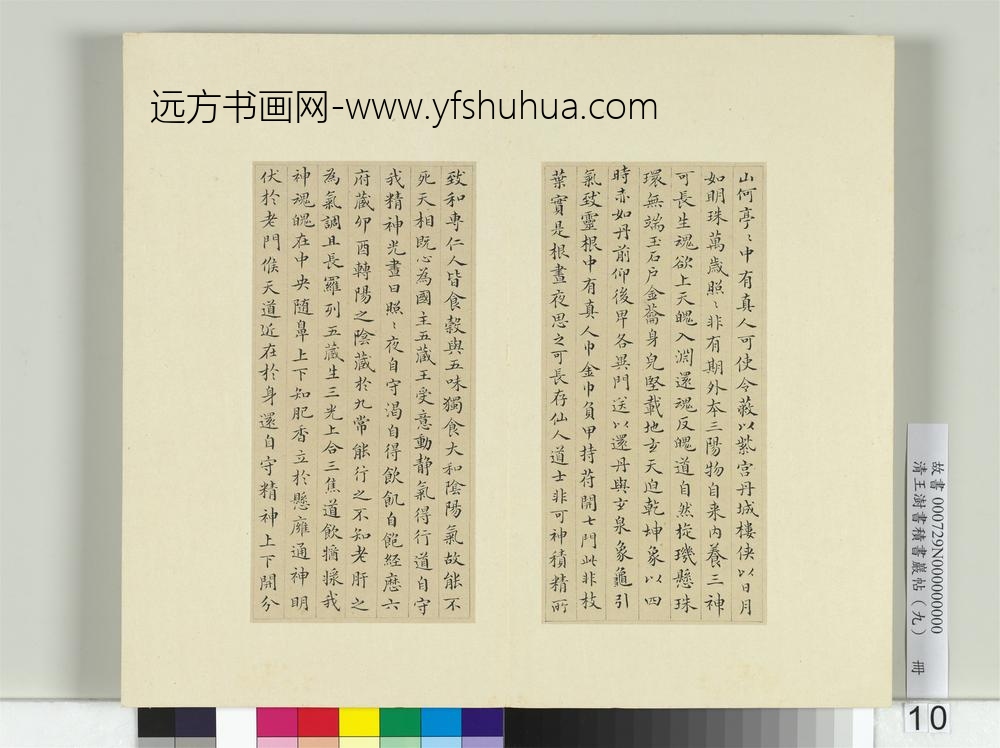 远方书画网-www.yfshuhua.com
山何亭〻中有真人可使令蔽以紫宫丹城樓俠以日月
如明珠萬歲照〻非有期外本三陽物自来内養三神
可長生魂欲上天魄入渊還魂反魄道自然旋璣懸珠
環無端玉石户金籥身皃堅載地玄天迫乾坤象以四
時赤如丹前仰後卑各異門送以還丹與玄泉象龜引
氣致靈根中有真人巾金巾負甲持苻開七門此非枝
葉實是根晝夜思之可長存仙人道士非可神積精所
致和專仁人皆食穀與五味獨食大和陰陽氣故能不
死天相既心為國主五藏王受意動静氣得行道自守
我精神光晝日照〻夜自守渴自得飲飢自飽經歷六
府藏卯酉轉陽之陰藏於九常能行之不知老肝之
為氣調且長羅列五藏生三光上合三焦道飲漿我
神魂魄在中央随鼻上下知肥香立於懸雍通神明
伏於老門候天道近在於身還自守精神上下開分
故書 000729N000000000
清王澍書積書巖帖（九） 冊
10